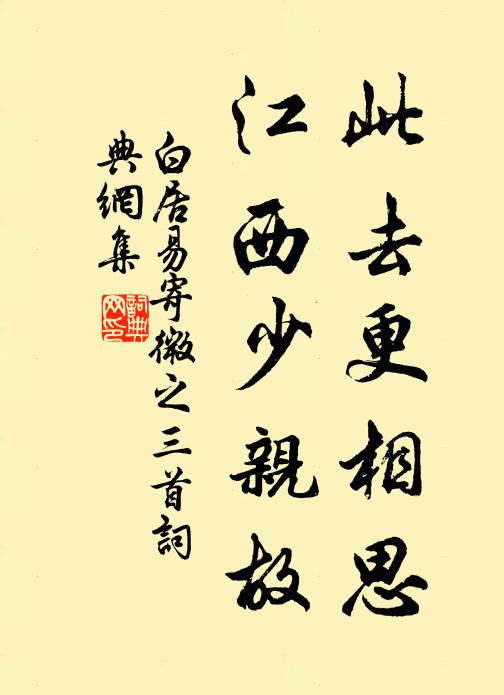 此去更相思
江西少親故
白居易寄微之三首詞
典網集
詞典網印